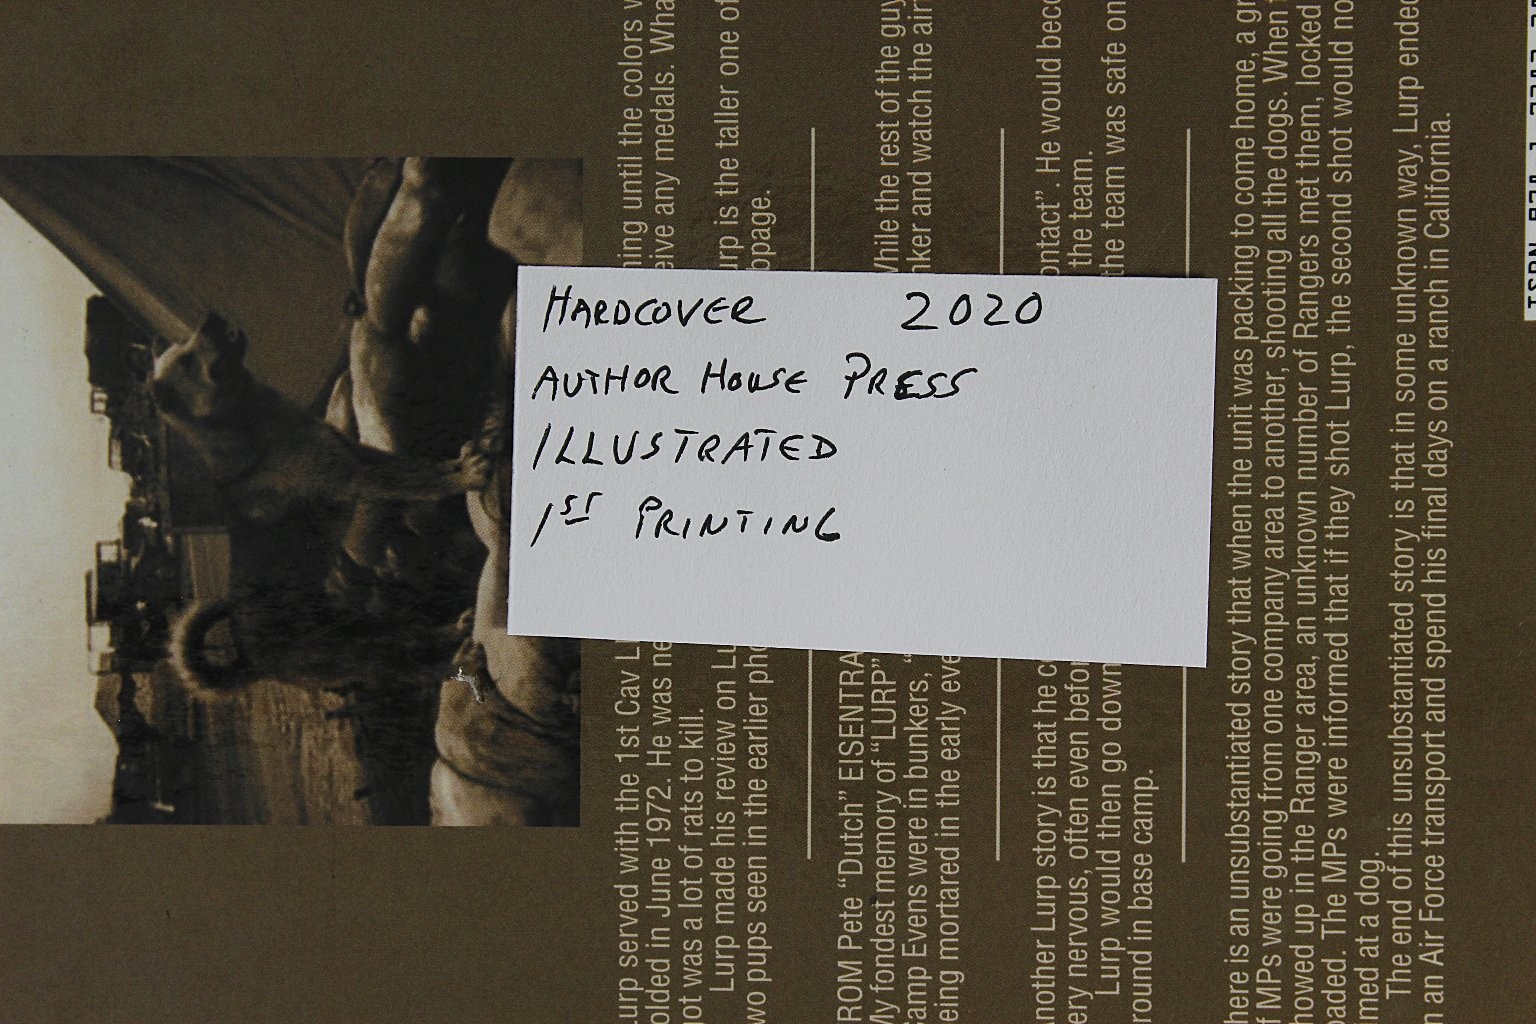 HARDCOVER 2020
AUTHOR HOUSE PRESS
ILLUSTRATED
1ST PRINTING
Lurp served with the 1st Cav L ning until the colors w
olded in June 1972. He was ne eive any medals. Wha
got was a lot of rats to kill.
Lurp made his review on Lu urp is the taller one of
wo pups seen in the earlier pho bpage.
ROM Pete “Dutch” EISENTRA
My fondest memory of “LURP” While the rest of the guy
Camp Evens were in bunkers, “ nker and watch the air
eing mortared in the early eve
nother Lurp story is that he c ontact”. He would beco
ery nervous, often even befor the team.
Lurp would then go down the team was safe on
round in base camp.
here is an unsubstantiated story that when the unit was packing to come home, a gr
f MPs were going from one company area to another, shooting all the dogs. When
howed up in the Ranger area, an unknown number of Rangers met them, locked
oaded. The MPs were informed that if they shot Lurp, the second shot would no
med at a dog.
The end of this unsubstantiated story is that in some unknown way, Lurp ended
n an Air Force transport and spend his final days on a ranch in California.